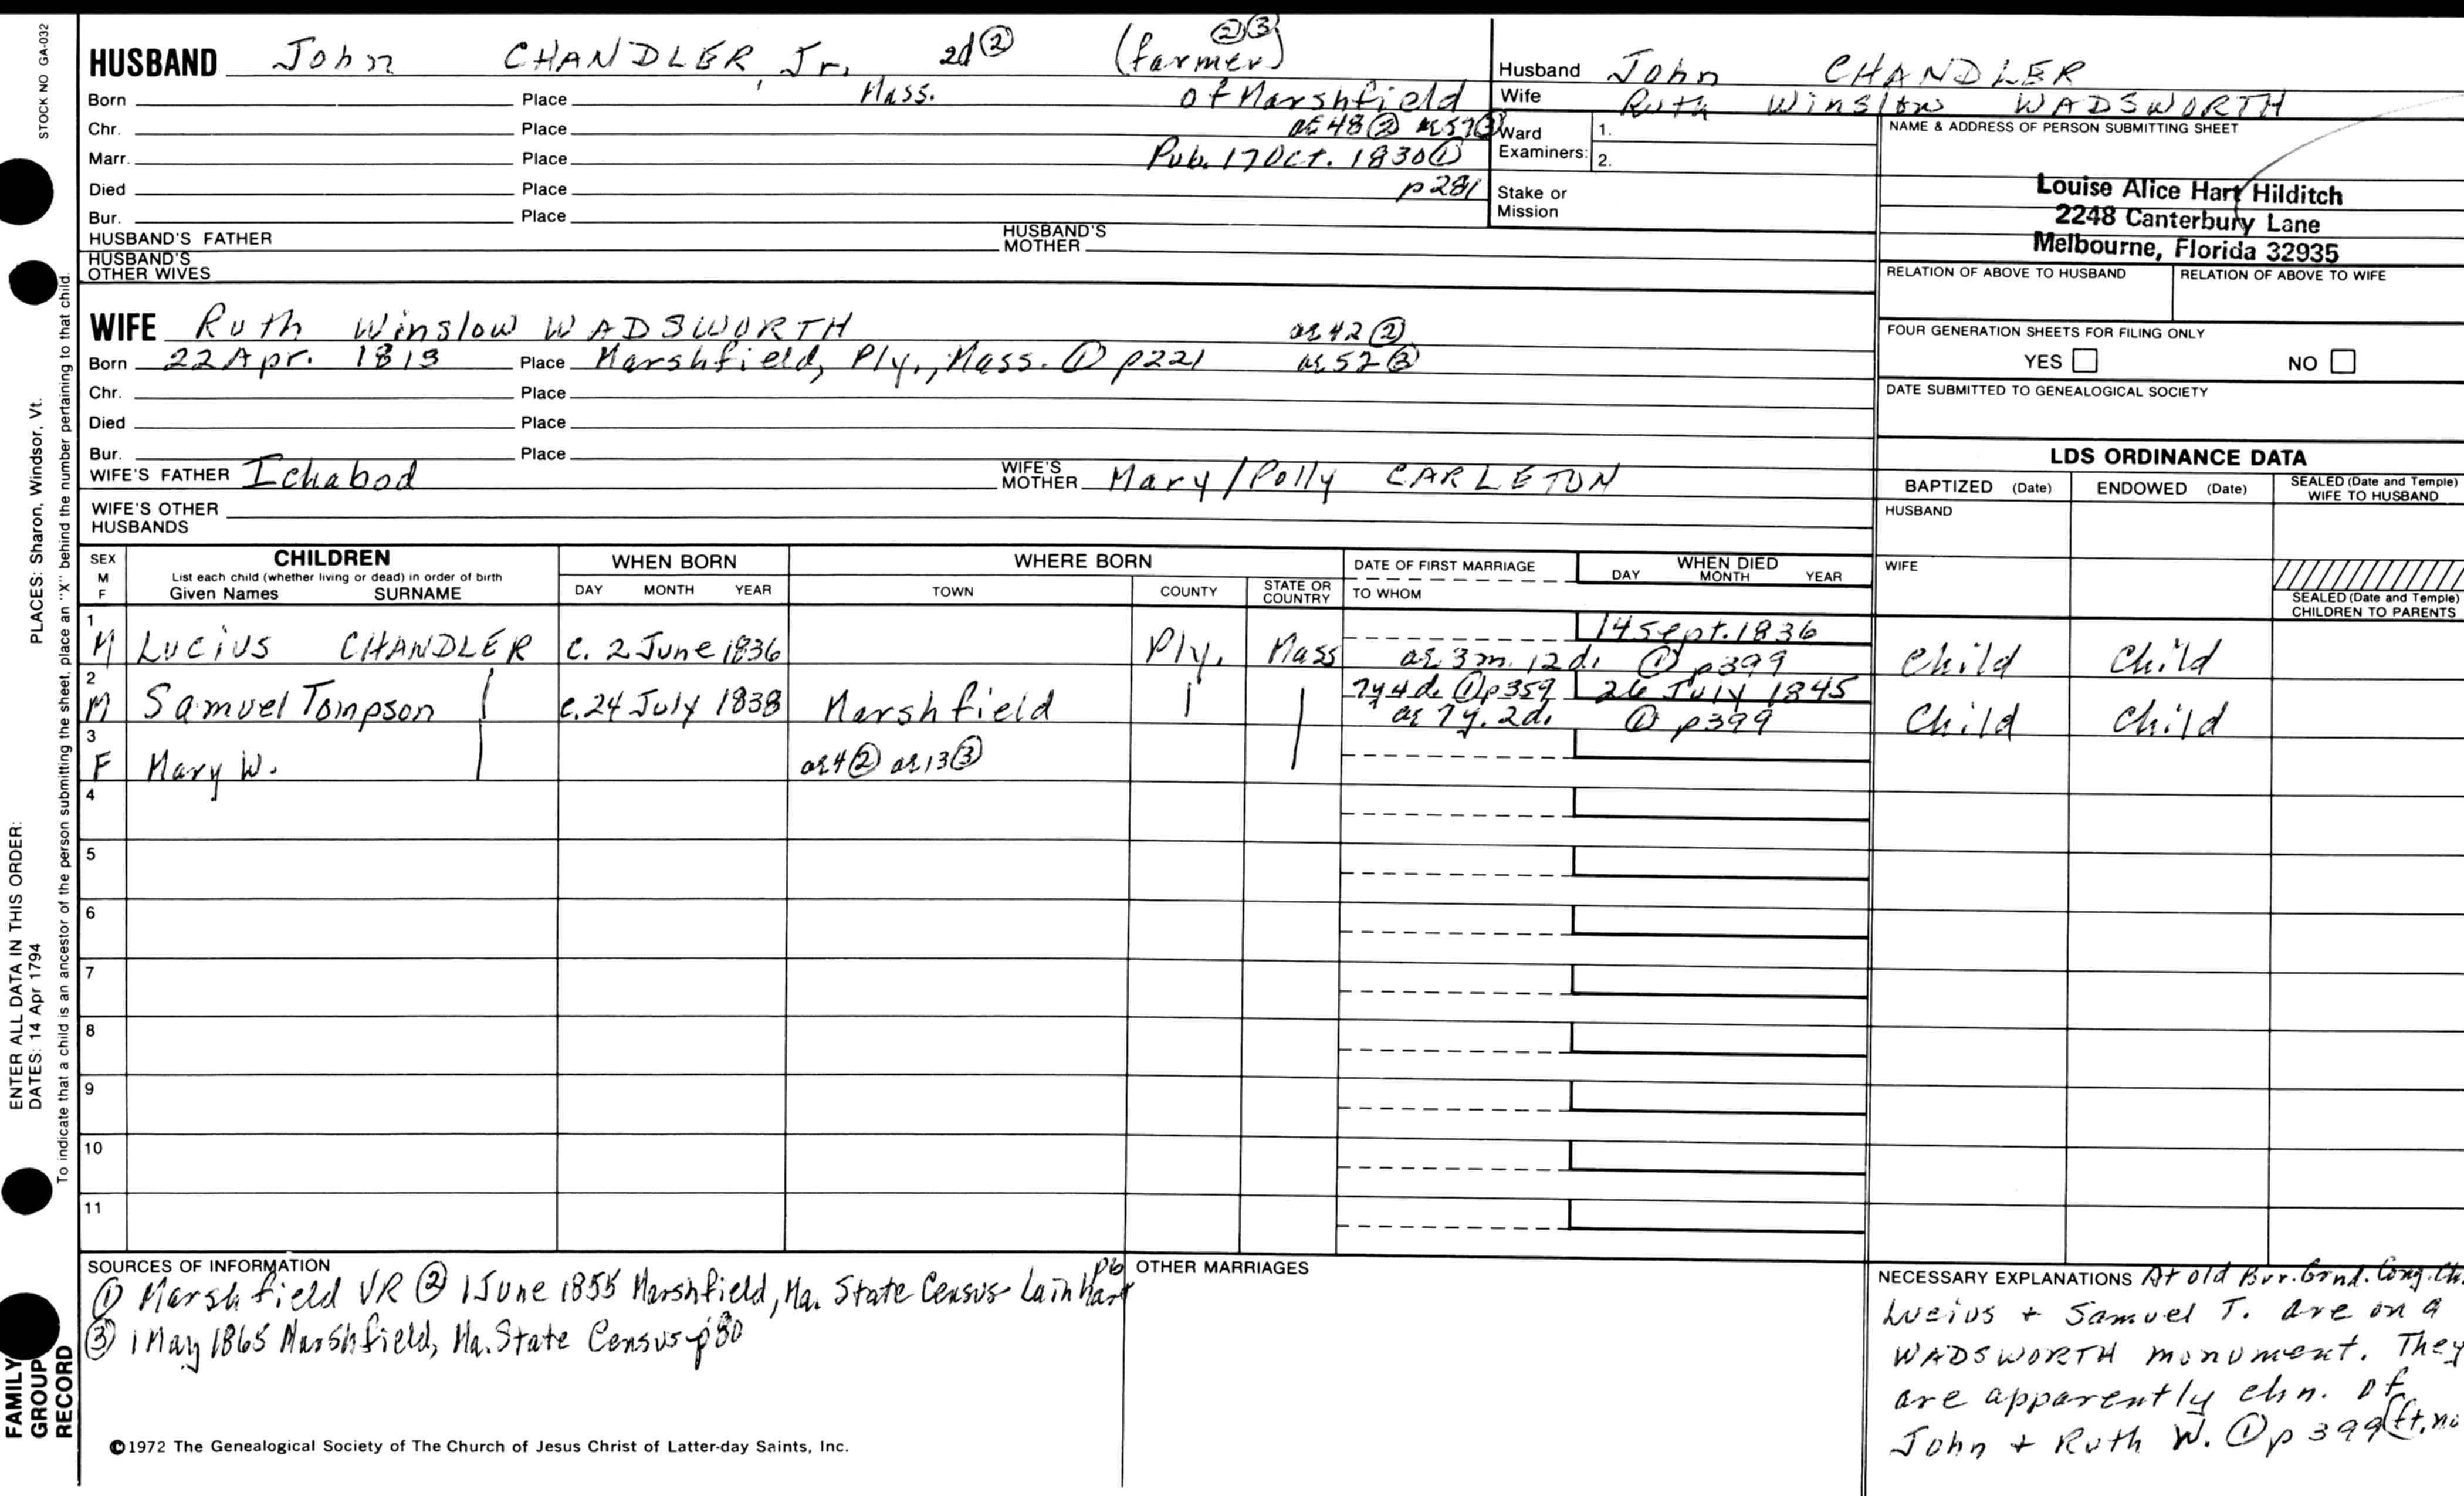 STOCK NO GA-032
HUSBAND John CHANDLER, Jr. 2d ② (farmer) ②③
Born Place Mass. of Marshfield
Chr. Place ae 48 ② ae 57 ③
Marr. Place Pub. 17 Oct. 1830 ①
Died Place p 281
Bur. Place
HUSBAND'S FATHER HUSBAND'S MOTHER
HUSBAND'S OTHER WIVES
Husband John CHANDLER
Wife Ruth Winslow WADSWORTH
Ward Examiners: 1.
2.
Stake or Mission
NAME & ADDRESS OF PERSON SUBMITTING SHEET
Louise Alice Hart Hilditch
2248 Canterbury Lane
Melbourne, Florida 32935
RELATION OF ABOVE TO HUSBAND RELATION OF ABOVE TO WIFE
FOUR GENERATION SHEETS FOR FILING ONLY
YES NO
DATE SUBMITTED TO GENEALOGICAL SOCIETY
WIFE Ruth Winslow WADSWORTH ae 42 ②
Born 22 Apr. 1813 Place Marshfield, Ply., Mass. ① p221 ae 52 ③
Chr. Place
Died Place
Bur. Place
WIFE'S FATHER Ichabod WIFE'S MOTHER Mary/Polly CARLETON
WIFE'S OTHER HUSBANDS
LDS ORDINANCE DATA
BAPTIZED (Date) ENDOWED (Date) SEALED (Date and Temple) WIFE TO HUSBAND
HUSBAND
WIFE
SEALED (Date and Temple) CHILDREN TO PARENTS
SEX M F
CHILDREN
List each child (whether living or dead) in order of birth
Given Names SURNAME
WHEN BORN
DAY MONTH YEAR
WHERE BORN
TOWN COUNTY STATE OR COUNTRY
DATE OF FIRST MARRIAGE
TO WHOM
WHEN DIED
DAY MONTH YEAR
1 14 Sept. 1836
M Lucius CHANDLER c. 2 June 1836 Ply. Mass ae 3 m. 12 d. ① p399 Child Child
2 7y 4d. ① p359 26 July 1845
M Samuel Tompson c. 24 July 1838 Marshfield ae 7y. 2d. ① p399 Child Child
3
F Mary W. ae 4 ② ae 13 ③
4
5
6
7
8
9
10
11
SOURCES OF INFORMATION
① Marshfield VR ② 1 June 1855 Marshfield, Ma. State Census-Lainhart p6
③ 1 May 1865 Marshfield, Ma. State Census-p80
OTHER MARRIAGES
NECESSARY EXPLANATIONS At old Bur. Grnd. Cong. Ch.
Lucius + Samuel T. are on a
WADSWORTH monument. They
are apparently chn. of
John + Ruth W. ① p 399
©1972 The Genealogical Society of The Church of Jesus Christ of Latter-day Saints, Inc.
PLACES: Sharon, Windsor, Vt.
ENTER ALL DATA IN THIS ORDER:
DATES: 14 Apr 1794
To indicate that a child is an ancestor of the person submitting the sheet, place an "X" behind the number pertaining to that child.
FAMILY GROUP RECORD